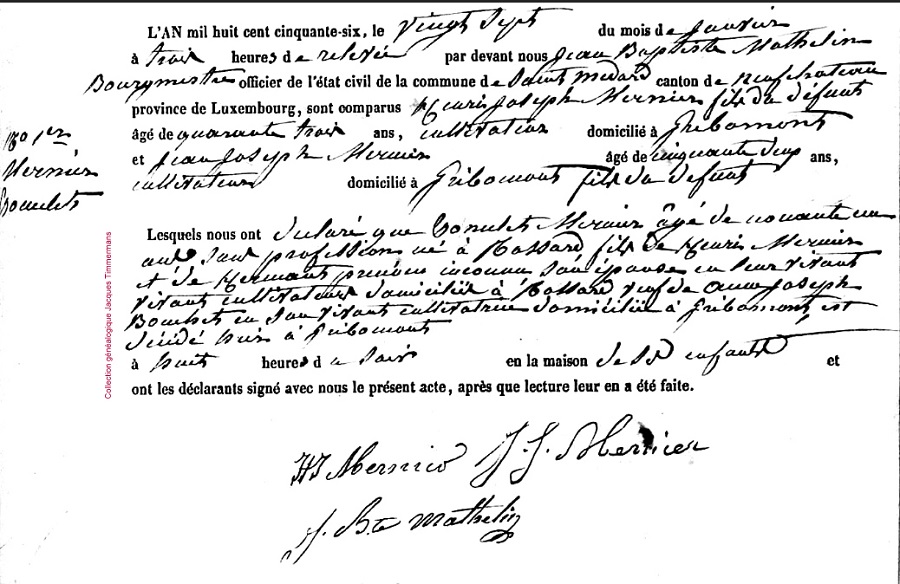 L'AN mil huit cent cinquante-six, le vingt sept du mois de Janvier
à trois heures de relevée par devant nous Jean Baptiste Mathelin
Bourgmestre officier de l'état civil de la commune de Saint Medard canton de neufchateau
province de Luxembourg, sont comparus Henri Joseph Mernier fils du défunt
âgé de quarante trois ans, cultivateur domicilié à Gribomont
et Jean Joseph Mernier âgé de cinquante deux ans,
cultivateur domicilié à Gribomont fils du defunt
No 1er
Mernier
Lesquels nous ont déclaré que Mernier âgé de nonante un
ans sans profession né à fils de Henri Mernier
et de prenom inconnu son épouse en leur vivant
vivant cultivateurs domiciliés à veuf de anne Joseph
en son vivant cultivatrice domiciliée à Gribomont, est
décédé hier à Gribomont
à huit heures du soir en la maison de ses enfants et
ont les déclarants signé avec nous le présent acte, après que lecture leur en a été faite.
HJ Mernier J. J. Mernier
J. Bte Mathelin
Collection généalogique Jacques Timmermans